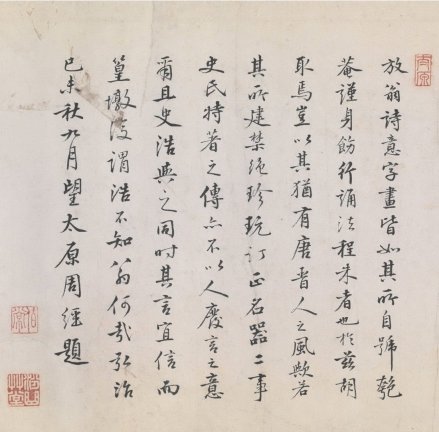 放翁詩意字畫皆如其所自號匏
菴謹身飭行誦法程朱者也於茲胡
取焉豈以其猶有唐晉人之風歟若
其所建禁絕珍玩訂正名器二事
史氏特著之傳亦不以人廢言之意
爾且史浩與之同時其言宜信而
篁墩復謂浩不知翁何哉弘治
己未秋九月望太原周經題